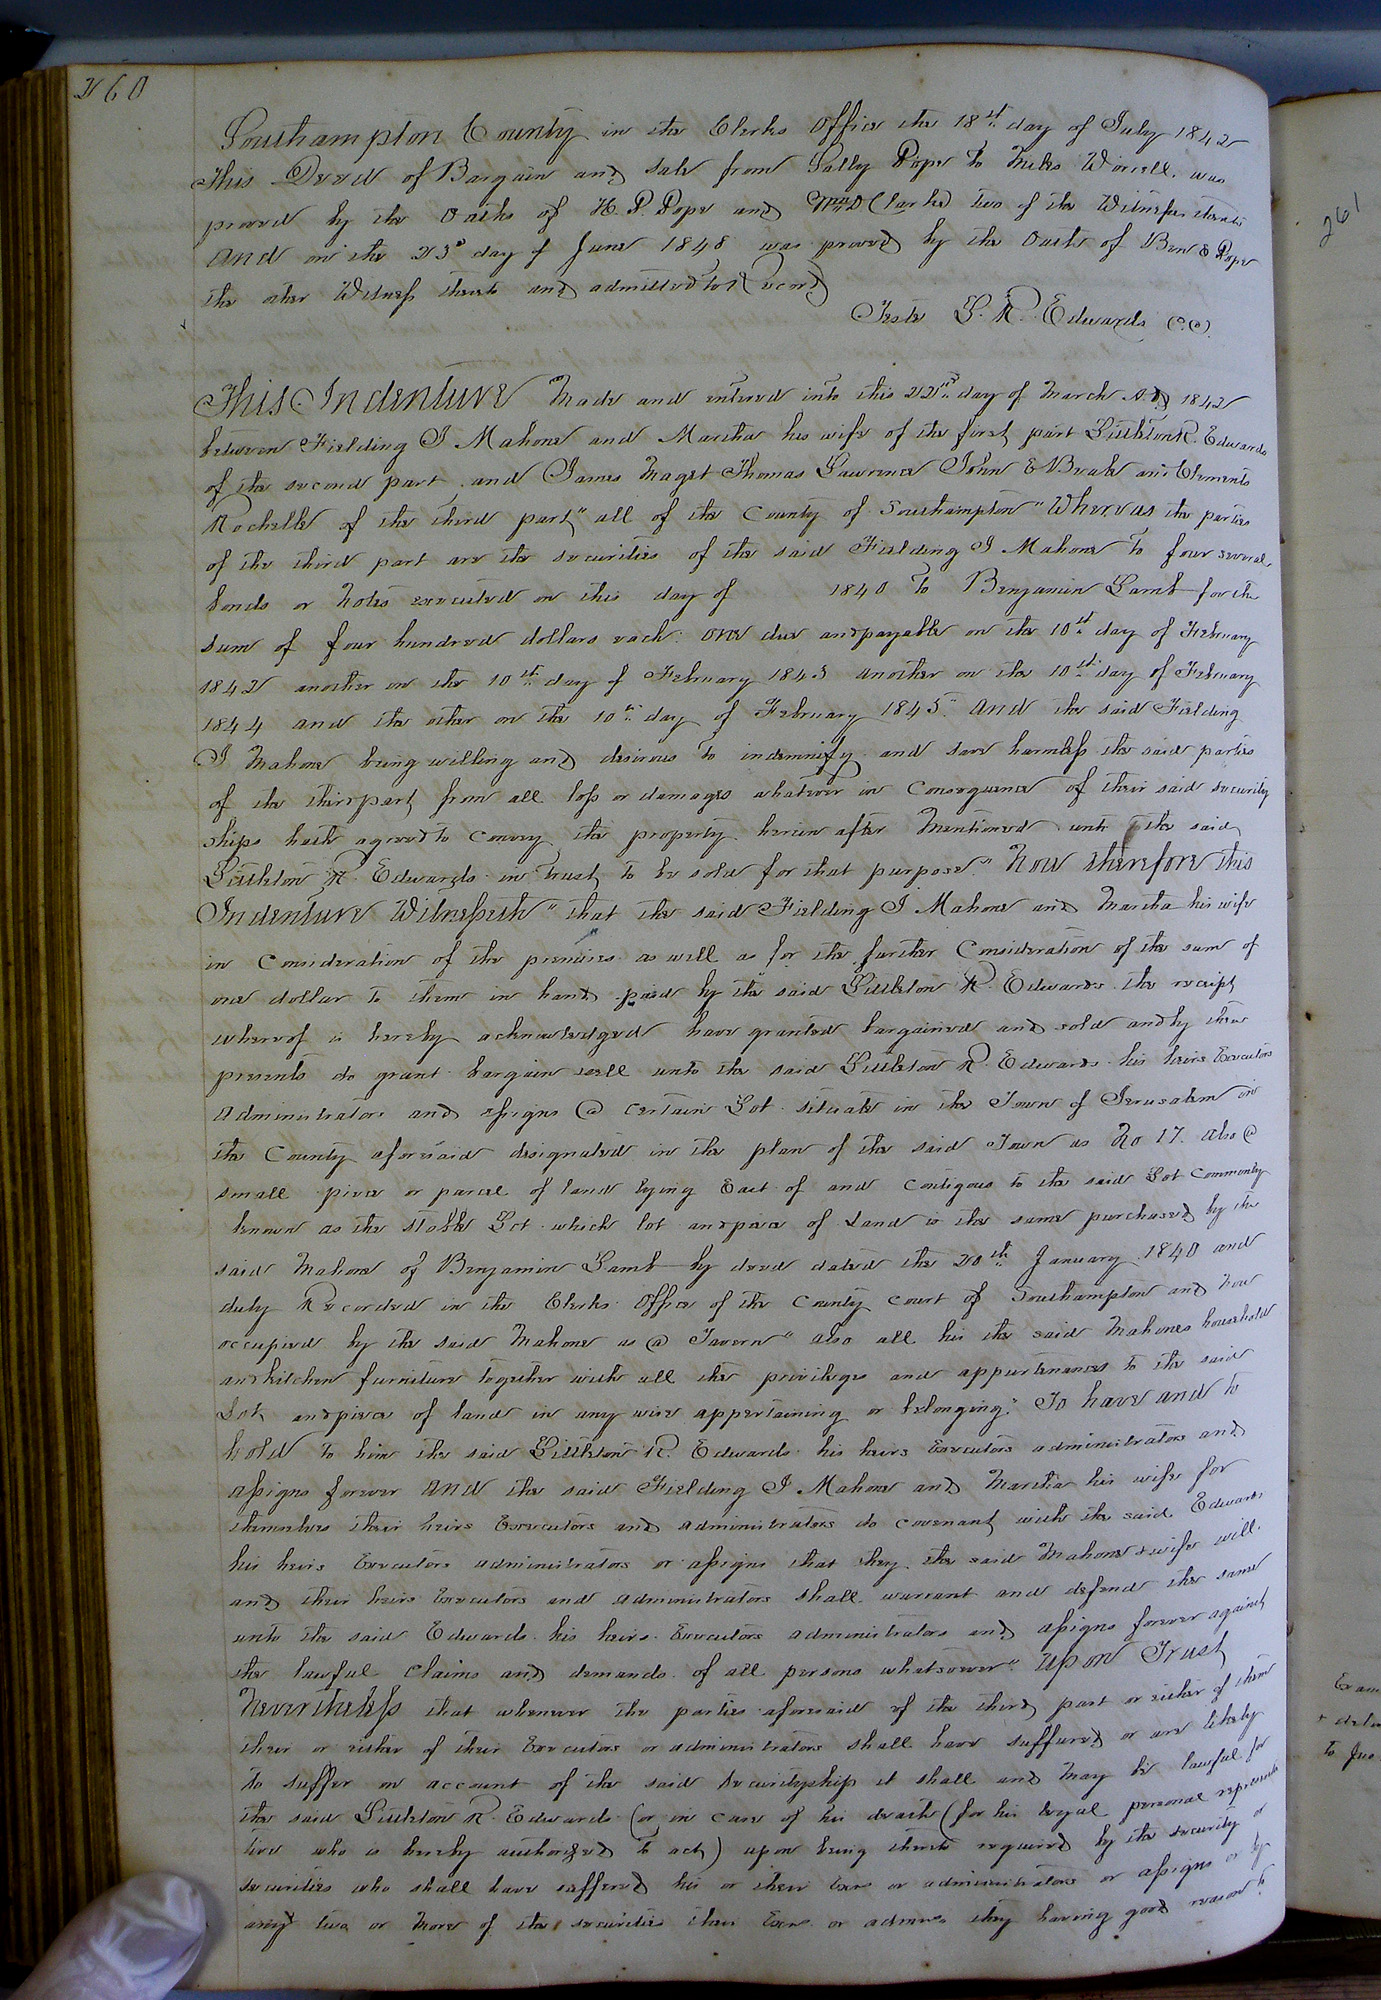 260
Southampton County in the Clerks Office the 18th day of July 1842
This Deed of Bargain and sale from Sally Pope to Miles Worrell was
proved by the Oaths of H. P. Pope and Wm D Clarke two of the Witnesses thereto
And on the 23d day of June 1848 was proved by the Oath of Ben E Pope
the other Witness thereto and admitted to Record
Teste L. R. Edwards C.C.
This Indenture Made and entered into this 22nd day of March A.D 1842
between Fielding J Mahone and Martha his wife of the first part Littleton R. Edwards
of the second part and James Maget Thomas Lawrence John E Beale and Clements
Rochelle of the third part, all of the County of Southampton " Whereas the parties
of the third part are the securities of the said Fielding J Mahone to four several,
bonds or notes executed on this day of 1840 to Benjamin Lamb for the
sum of four hundred dollars each. One due and payable on the 10th day of February
1842 another on the 10th day of February 1843 another on the 10th day of February
1844 and the other on the 10th day of February 1845" And the said Fielding
J Mahone being willing and desirous to indemnify and save harmless the said parties
of the third part from all loss or damages whatever in Consequence of their said security
ships hath agreed to Convey the property herein after Mentioned unto the said
Littleton R. Edwards in trust to be sold for that purpose" Now therefore this
Indenture Witnesseth" that the said Fielding J Mahone and Martha his wife
in Consideration of the premises as well as for the further Consideration of the sum of
one dollar to them in hand paid by the said Littleton R. Edwards the receipt
whereof is hereby acknowledged have granted bargained and sold and by these
presents do grant bargain sell unto the said Littleton R. Edwards his heirs Executors
Administrators and assigns @ certain Lot situate in the Town of Jerusalem in
the County aforesaid designated in the plan of the said Town as No 17. also @
small piece or parcel of land lying East of and Contigous to the said Lot Commonly
known as the Stable Lot which lot and piece of Land is the same purchased by the
said Mahone of Benjamin Lamb by deed dated the 20th January 1840 and
duly Recorded in the Clerks Office of the County Court of Southampton and Now
occupied by the said Mahone as @ Tavern" also all his the said Mahones household
and kitchen furniture together with all the privileges and appurtenances to the said
Lot, and piece of land in any wise appertaining or belonging" To have and to
hold to him the said Littleton R. Edwards his heirs Executors administrators and
assigns forever And the said Fielding J Mahone and Martha his wife for
themselves their heirs Executors and administrators do covenant with the said Edwards
his heirs Executors administrators or assigns that they the said Mahone & wife will
and their heirs Executors and administrators shall warrant and defend the same
unto the said Edwards his heirs Executors administrators and assigns forever against
the lawful claims and demands of all persons whatsoever" Upon Trust
Nevertheless that whenever the parties aforesaid of the third part or either of them
their or either of their Executors or administrators shall have suffured or are likely
to suffer on account of the said securityship it shall and may be lawful for
the said Littleton R. Edwards (or in case of his death (for his legal personal representa
tive who is hereby authorized to act) upon being thereto required by the security or
securities who shall have suffered his or their Exrs or administrators or assigns or by
any two or More of the securities their Exrs. or admrs. they having good reason to
261
Exam
& deliv
to Jno